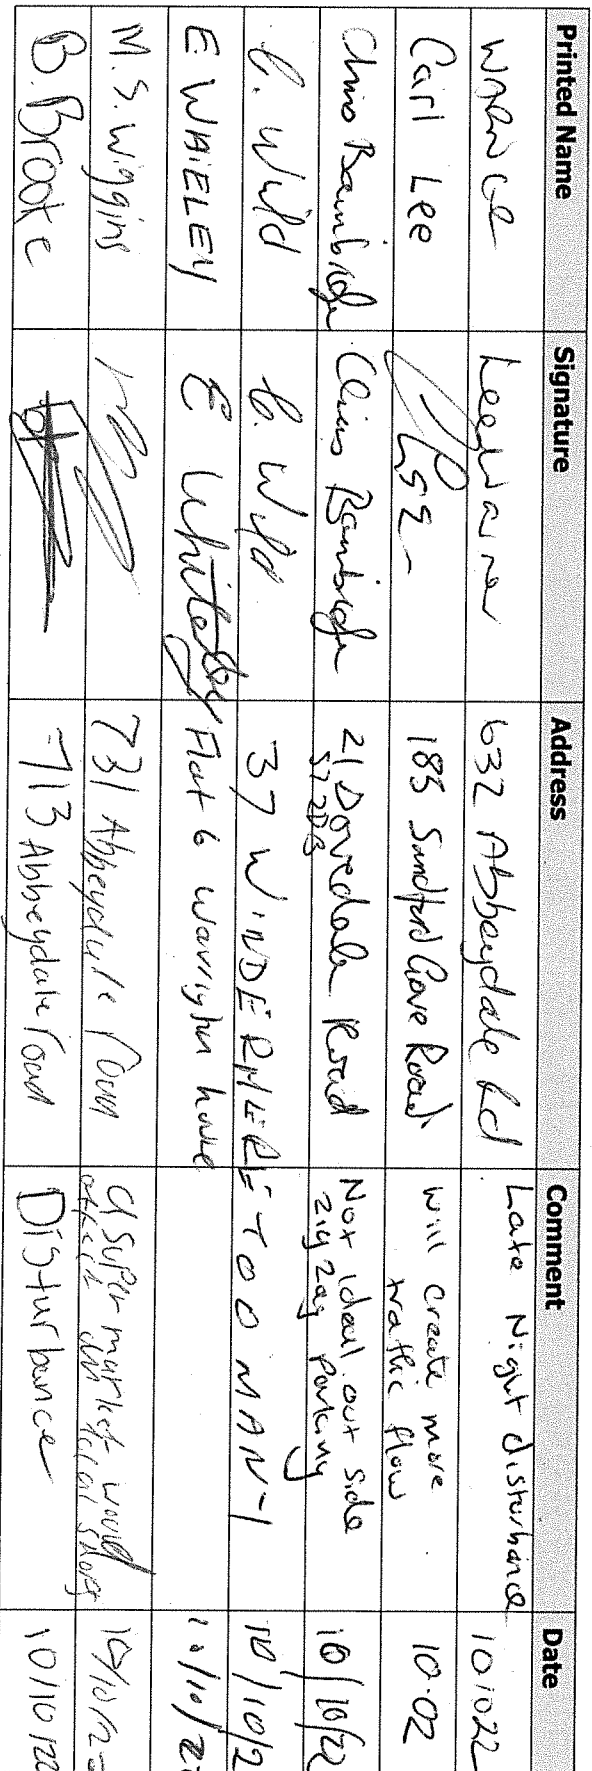 Printed Name Signature Address Comment Date
WARNCE Lee Warner 632 Abbeydale Rd Late Night disturbance 101022
Carl Lee 183 Sandford Grove Road will create more
traffic flow 10.02
Chris Bainbridge Chris Bainbridge 21 Dovedale Road
S7 2DB Not ideal out side
zig zag parking 10/10/22
C. Wild C. Wild 37 WINDERMERE TOO MANY 10/10/2
E. WHIELEY E Whiteley Flat 6 house 10/10/2
M.S. Wiggins 731 Abbeydale road a super market would
affect all local shops 10/10/2
B. Brooke 713 Abbeydale road Disturbance 10/10/22